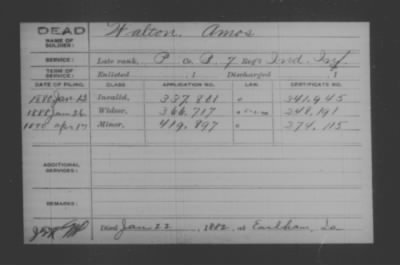 DEAD
NAME OF SOLDIER:
Walton, Amos
SERVICE:
Late rank, P Co. B, 7 Reg't Ind. Inf
TERM OF SERVICE:
Enlisted , 1 Discharged , 1
DATE OF FILING. CLASS. APPLICATION NO. LAW. CERTIFICATE NO.
1880 Jan 13 Invalid, 337.861 " 341.945
1888 Jan 26 Widow, 366.717 " 248.191
1890 Apr 17 Minor, 419.897 " 274.115
ADDITIONAL SERVICES:
REMARKS:
Died Jan 22, 1882, at Earlham, Ia